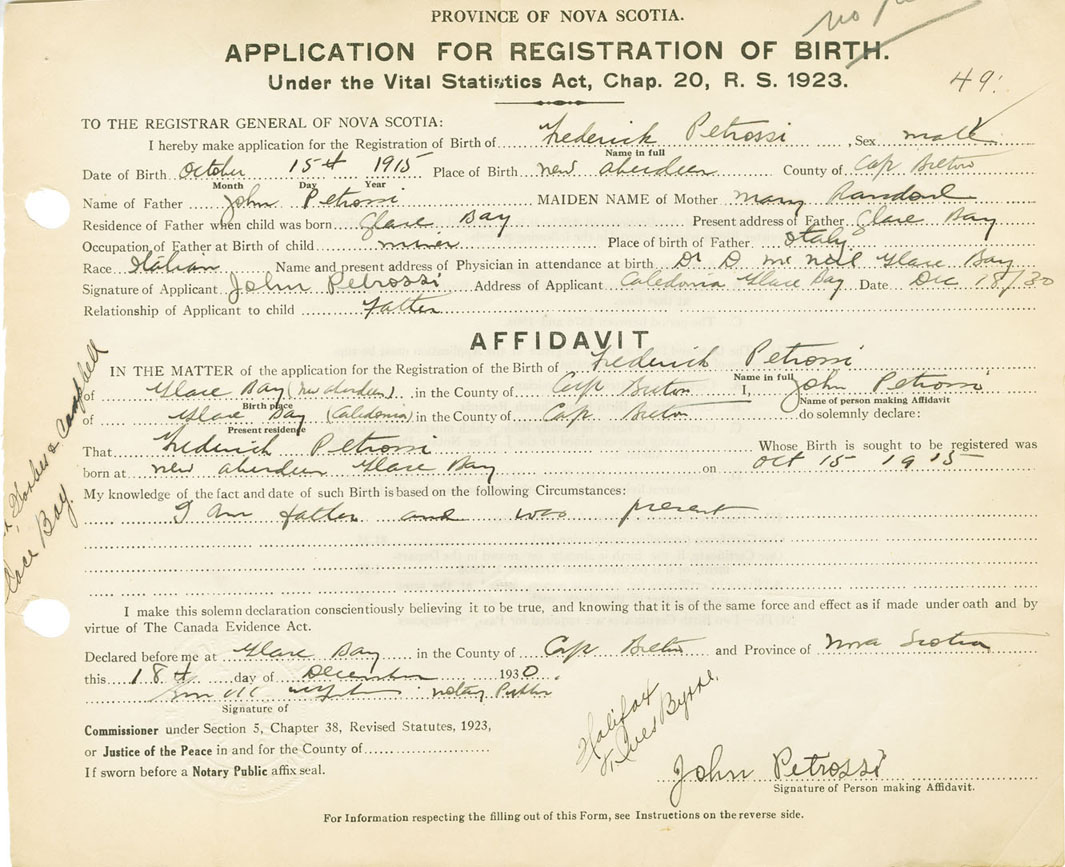 PROVINCE OF NOVA SCOTIA.
no
APPLICATION FOR REGISTRATION OF BIRTH.
Under the Vital Statistics Act, Chap. 20, R. S. 1923.
49
TO THE REGISTRAR GENERAL OF NOVA SCOTIA:
I hereby make application for the Registration of Birth of Frederick Petrossi, Sex male
Name in full
Date of Birth October 15th 1915 Place of Birth New Aberdeen County of Cape Breton
Month Day Year
Name of Father John Petrossi MAIDEN NAME of Mother Mary
Residence of Father when child was born Glace Bay Present address of Father Glace Bay
Occupation of Father at Birth of child miner Place of birth of Father Italy
Race Italian Name and present address of Physician in attendance at birth Dr D McNeil Glace Bay
Signature of Applicant John Petrossi Address of Applicant Caledonia Glace Bay Date Dec 18/30
Relationship of Applicant to child Father
AFFIDAVIT
IN THE MATTER of the application for the Registration of the Birth of Frederick Petrossi
Name in full
of Glace Bay (New Aberdeen) in the County of Cape Breton I, John Petrossi
Birth place Name of person making Affidavit
of Glace Bay (Caledonia) in the County of Cape Breton do solemnly declare:
Present residence
That Frederick Petrossi Whose Birth is sought to be registered was
born at New Aberdeen Glace Bay on Oct 15 1915
My knowledge of the fact and date of such Birth is based on the following Circumstances:
I am father and was present
I make this solemn declaration conscientiously believing it to be true, and knowing that it is of the same force and effect as if made under oath and by
virtue of The Canada Evidence Act.
Declared before me at Glace Bay in the County of Cape Breton and Province of Nova Scotia
this 18th day of December 1930.
Notary Public
Signature of
Commissioner under Section 5, Chapter 38, Revised Statutes, 1923,
or Justice of the Peace in and for the County of
If sworn before a Notary Public affix seal.
Halifax
Ives Byrne.
John Petrossi
Signature of Person making Affidavit.
For Information respecting the filling out of this Form, see Instructions on the reverse side.
Forbes & Campbell
Glace Bay.